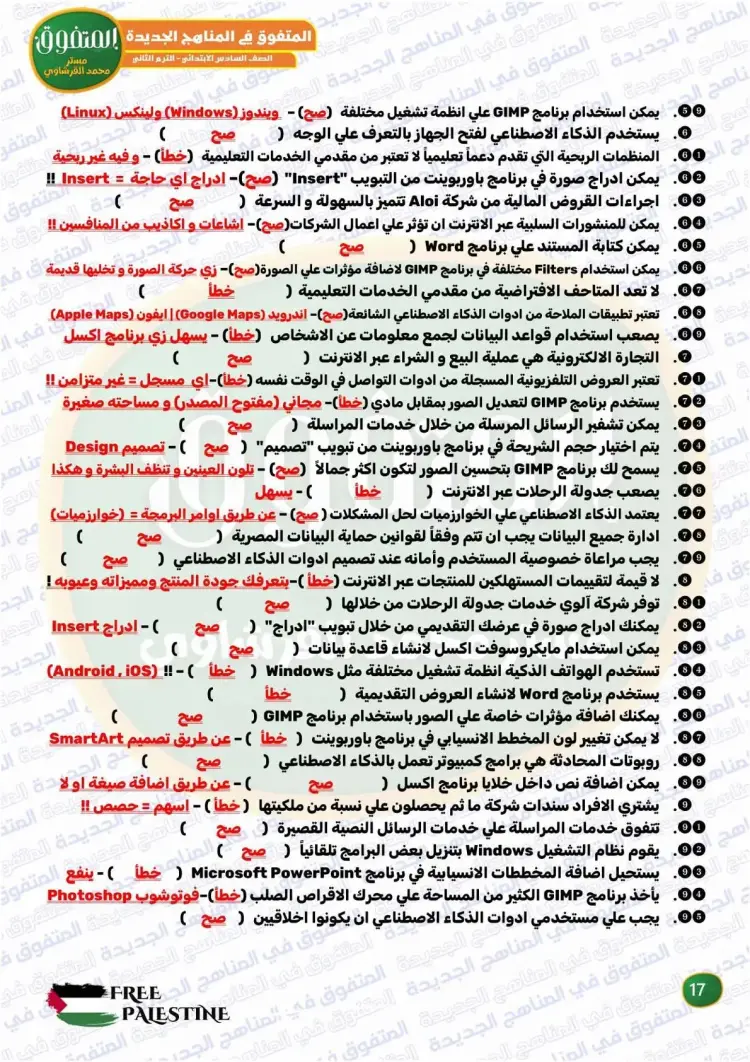 المتفوق في المناهج الجديدة
الصف السادس الابتدائي - الترم الثاني
المتفوق
مستر
محمد القرشاوي
٥٩. يمكن استخدام برنامج GIMP علي انظمة تشغيل مختلفة (صح) - ويندوز (Windows) ولينكس (Linux)
٦٠. يستخدم الذكاء الاصطناعي لفتح الجهاز بالتعرف علي الوجه ( صح )
٦١. المنظمات الربحية التي تقدم دعماً تعليمياً لا تعتبر من مقدمي الخدمات التعليمية (خطأ) - و فيه غير ربحية
٦٢. يمكن ادراج صورة في برنامج باوربوينت من التبويب "Insert" (صح)- ادراج اي حاجة = Insert !!
٦٣. اجراءات القروض المالية من شركة Aloi تتميز بالسهولة و السرعة ( صح )
٦٤. يمكن للمنشورات السلبية عبر الانترنت ان تؤثر علي اعمال الشركات(صح)- إشاعات و اكاذيب من المنافسين !!
٦٥. يمكن كتابة المستند علي برنامج Word ( صح )
٦٦. يمكن استخدام Filters مختلفة في برنامج GIMP لاضافة مؤثرات علي الصورة(صح)- زي حركة الصورة و تخليها قديمة
٦٧. لا تعد المتاحف الافتراضية من مقدمي الخدمات التعليمية ( خطأ )
٦٨. تعتبر تطبيقات الملاحة من ادوات الذكاء الاصطناعي الشائعة(صح)- اندرويد (Google Maps) | ايفون (Apple Maps)
٦٩. يصعب استخدام قواعد البيانات لجمع معلومات عن الاشخاص (خطأ) - يسهل زي برنامج اكسل
٧٠. التجارة الالكترونية هي عملية البيع و الشراء عبر الانترنت ( صح )
٧١. تعتبر العروض التلفزيونية المسجلة من ادوات التواصل في الوقت نفسه (خطأ)-اي مسجل = غير متزامن !!
٧٢. يستخدم برنامج GIMP لتعديل الصور بمقابل مادي (خطأ)- مجاني (مفتوح المصدر) و مساحته صغيرة
٧٣. يمكن تشفير الرسائل المرسلة من خلال خدمات المراسلة ( صح )
٧٤. يتم اختيار حجم الشريحة في برنامج باوربوينت من تبويب "تصميم" ( صح ) - تصميم Design
٧٥. يسمح لك برنامج GIMP بتحسين الصور لتكون اكثر جمالاً (صح) - تلون العينين و تنظف البشرة و هكذا
٧٦. يصعب جدولة الرحلات عبر الانترنت ( خطأ ) - يسهل
٧٧. يعتمد الذكاء الاصطناعي علي الخوارزميات لحل المشكلات (صح) - عن طريق اوامر البرمجة = (خوارزميات)
٧٨. ادارة جميع البيانات يجب ان تتم وفقاً لقوانين حماية البيانات المصرية ( صح )
٧٩. يجب مراعاة خصوصية المستخدم وأمانه عند تصميم ادوات الذكاء الاصطناعي ( صح )
٨٠. لا قيمة لتقييمات المستهلكين للمنتجات عبر الانترنت (خطأ )-بتعرفك جودة المنتج ومميزاته وعيوبه !
٨١. توفر شركة آلوي خدمات جدولة الرحلات من خلالها ( صح )
٨٢. يمكنك ادراج صورة في عرضك التقديمي من خلال تبويب "ادراج" ( صح ) - ادراج Insert
٨٣. يمكن استخدام مايكروسوفت اكسل لانشاء قاعدة بيانات ( صح )
٨٤. تستخدم الهواتف الذكية انظمة تشغيل مختلفة مثل Windows ( خطأ ) - !! (Android , iOS)
٨٥. يستخدم برنامج Word لانشاء العروض التقديمية ( خطأ )
٨٦. يمكنك اضافة مؤثرات خاصة علي الصور باستخدام برنامج GIMP ( صح )
٨٧. لا يمكن تغيير لون المخطط الانسيابي في برنامج باوربوينت ( خطأ ) - عن طريق تصميم SmartArt
٨٨. روبوتات المحادثة هي برامج كمبيوتر تعمل بالذكاء الاصطناعي ( صح )
٨٩. يمكن اضافة نص داخل خلايا برنامج اكسل ( صح ) - عن طريق اضافة صيغة او لا
٩٠. يشتري الافراد سندات شركة ما ثم يحصلون علي نسبة من ملكيتها ( خطأ ) - اسهم = حصص !!
٩١. تتفوق خدمات المراسلة علي خدمات الرسائل النصية القصيرة ( صح )
٩٢. يقوم نظام التشغيل Windows بتنزيل بعض البرامج تلقائياً ( صح )
٩٣. يستحيل اضافة المخططات الانسيابية في برنامج Microsoft PowerPoint ( خطأ ) - ينفع
٩٤. يأخذ برنامج GIMP الكثير من المساحة علي محرك الاقراص الصلب (خطأ)-فوتوشوب Photoshop
٩٥. يجب علي مستخدمي ادوات الذكاء الاصطناعي ان يكونوا اخلاقيين ( صح )
FREE
PALESTINE
17